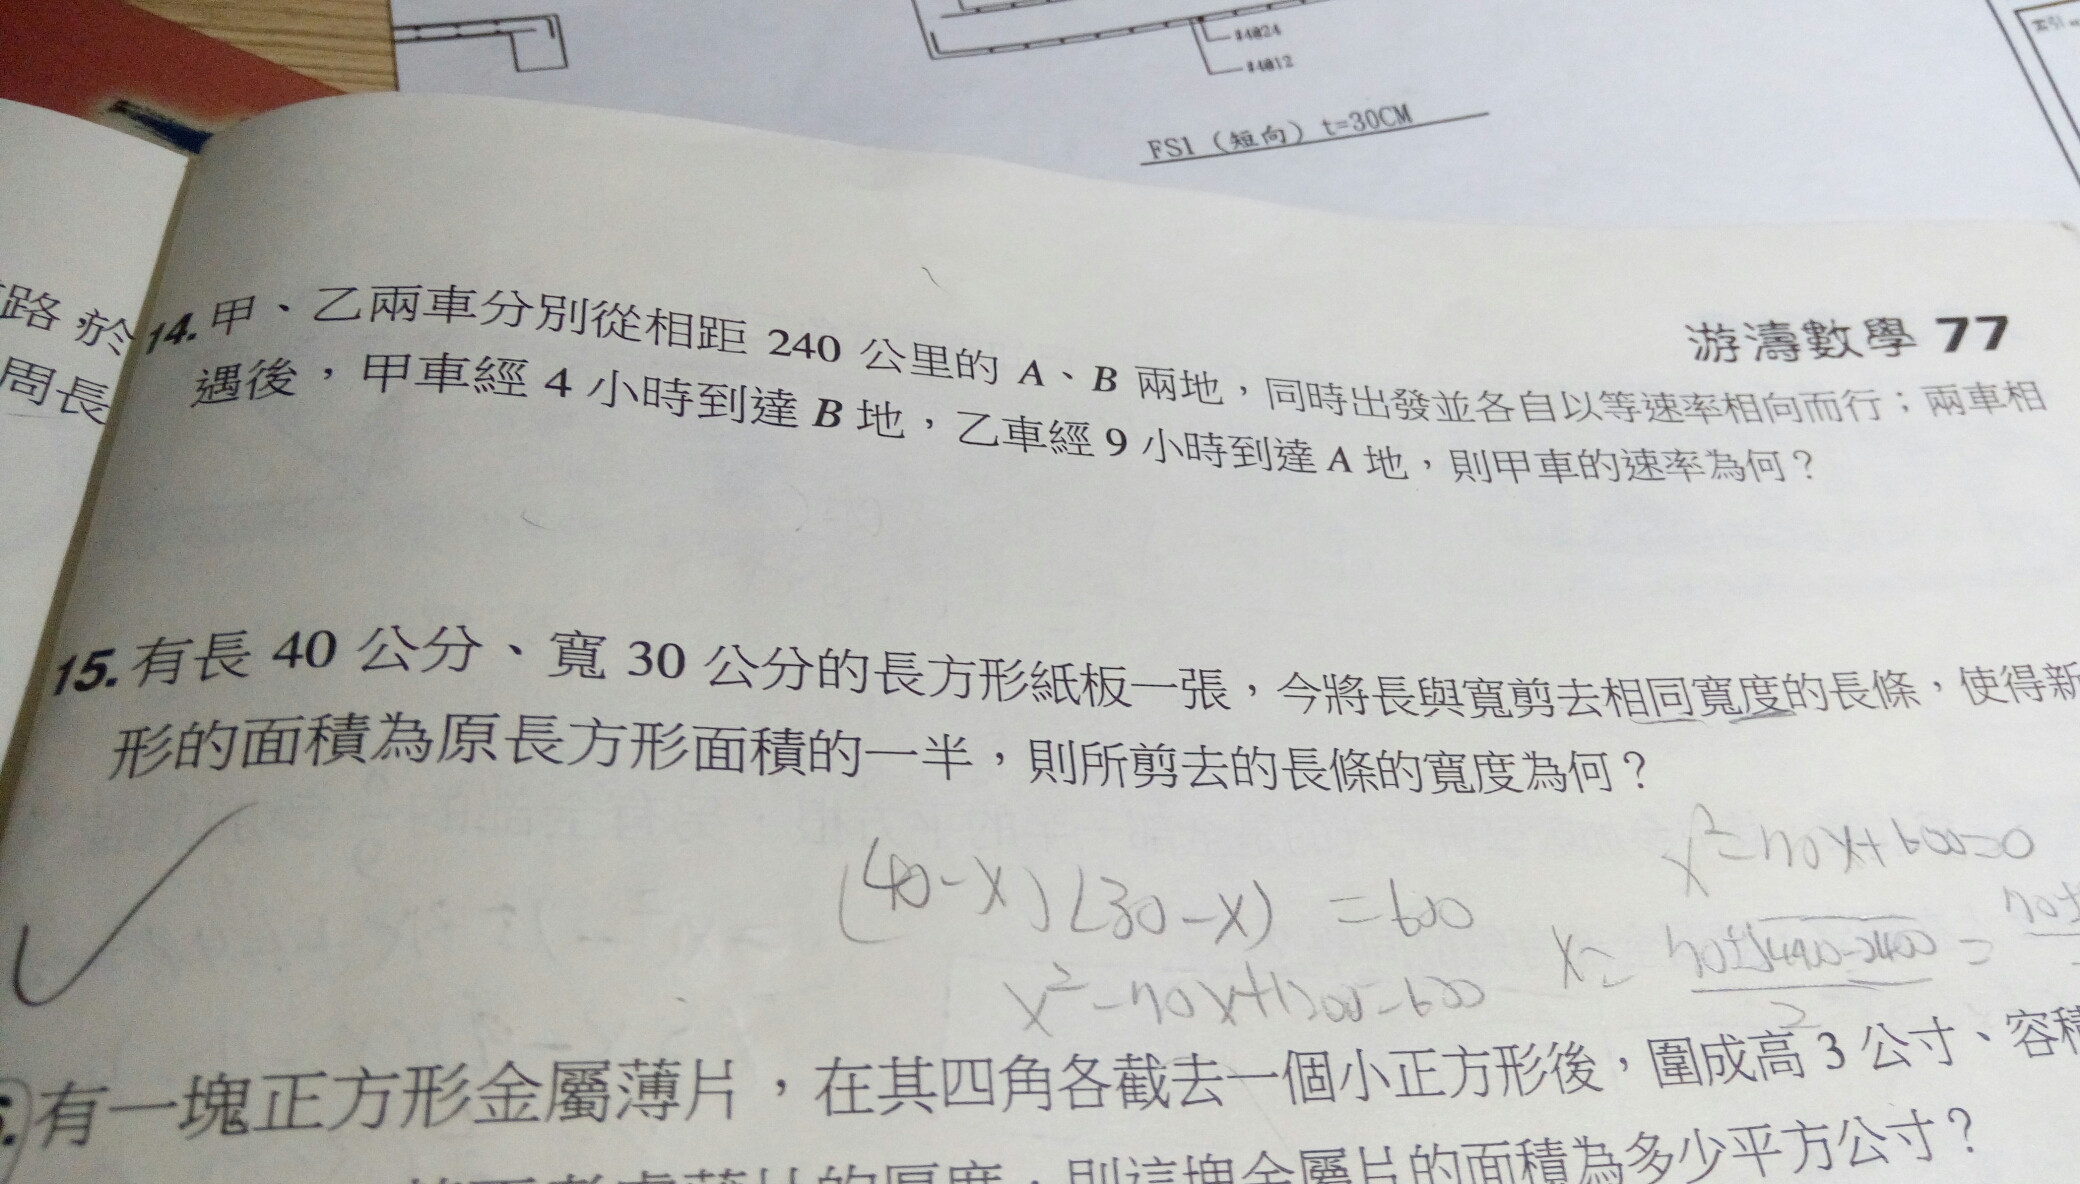 #4@24
#4@12
FS1 (短向) t=30CM
索引
路,於
周長
游濤數學 77
14. 甲、乙兩車分別從相距 240 公里的 A、B 兩地,同時出發並各自以等速率相向而行;兩車相
遇後,甲車經 4 小時到達 B 地,乙車經 9 小時到達 A 地,則甲車的速率為何?
15. 有長 40 公分、寬 30 公分的長方形紙板一張,今將長與寬剪去相同寬度的長條,使得新
形的面積為原長方形面積的一半,則所剪去的長條的寬度為何?
(40-x)(30-x) = 600
x²-70x+1200=600
x²-70x+600=0
x= 70±√4900-2400 / 2 = 70±
有一塊正方形金屬薄片,在其四角各截去一個小正方形後,圍成高 3 公寸、容積
的厚度,則這塊金屬片的面積為多少平方公寸?